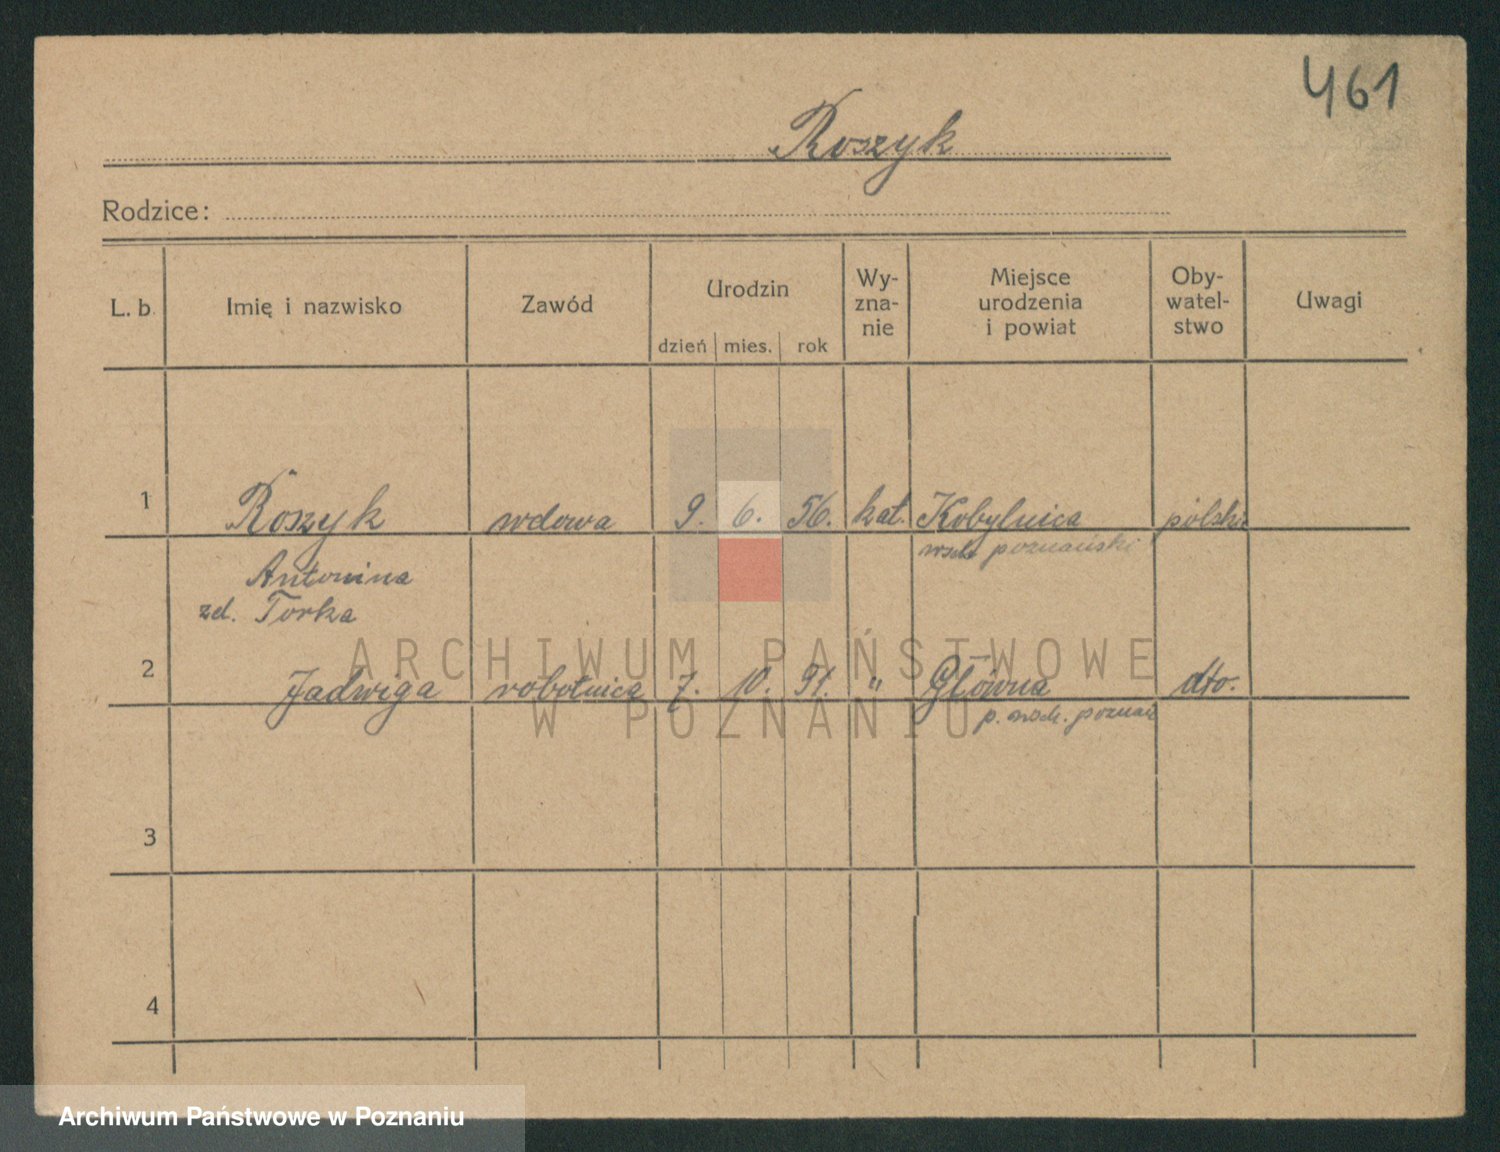 461
Roszyk
Rodzice:
L. b. Imię i nazwisko Zawód Urodzin dzień mies. rok Wy-zna-nie Miejsce urodzenia i powiat Oby-watel-stwo Uwagi
1 Roszyk wdowa 9. 6. 56. kat. Kobylnica polskie
wsch. poznański
Antonina
zd. Torka
2 Jadwiga robotnica 7. 10. 91. " Główna dto.
p. wsch. poznań
3
4
ARCHIWUM PAŃSTWOWE
W POZNANIU
Archiwum Państwowe w Poznaniu